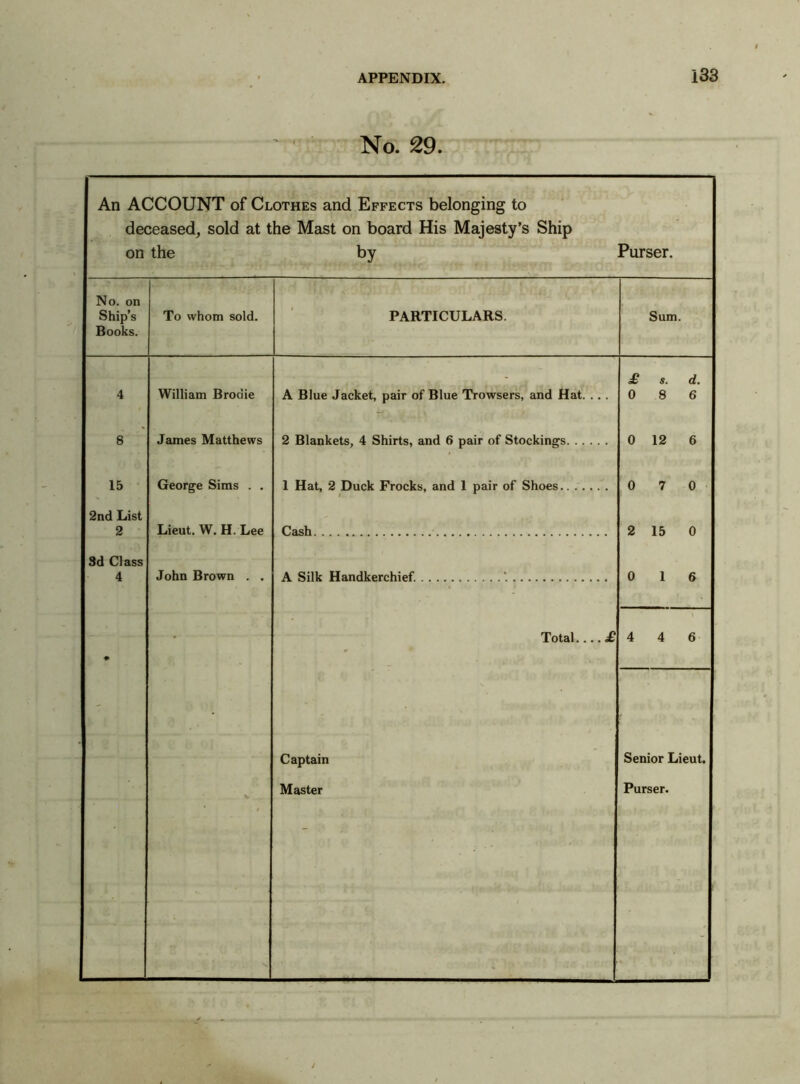 APPENDIX. 133
No. 29.
An ACCOUNT of CLOTHES and EFFECTS belonging to
deceased, sold at the Mast on board His Majesty's Ship
on the by Purser.
No. on Ship's Books. To whom sold. PARTICULARS. Sum.
£ s. d.
4 William Brodie A Blue Jacket, pair of Blue Trowsers, and Hat.... 0 8 6
8 James Matthews 2 Blankets, 4 Shirts, and 6 pair of Stockings...... 0 12 6
15 George Sims . . 1 Hat, 2 Duck Frocks, and 1 pair of Shoes....... 0 7 0
2nd List
2 Lieut. W. H. Lee Cash........................................ 2 15 0
3d Class
4 John Brown . . A Silk Handkerchief........................... 0 1 6
Total....£ 4 4 6
Captain Senior Lieut.
Master Purser.